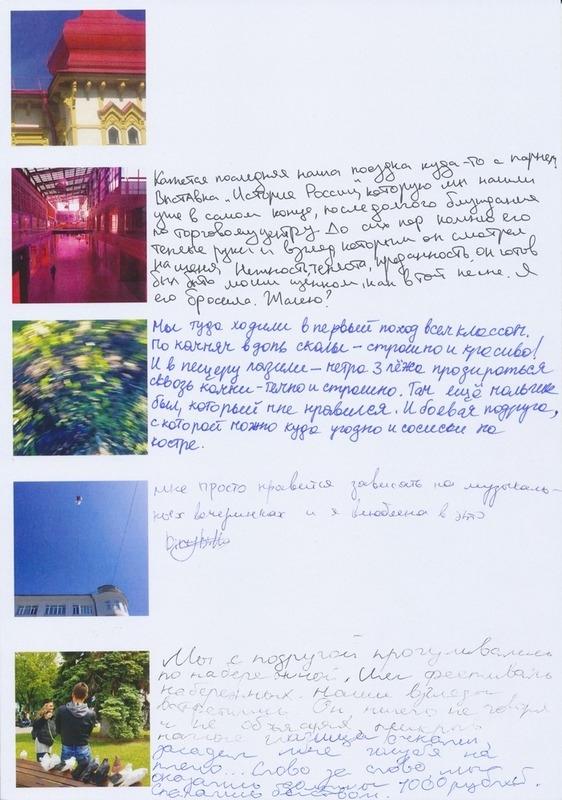 Кажется последняя наша поездка куда-то с парнем
Выставка "История России", которую мы нашли
уже в самом конце, после долгого блуждания
по торговому центру. До сих пор помню его
теплые руки и взгляд которым он смотрел
на меня. Нежность, теплота, преданность, он готов
был быть моим щенком, как в той песне. Я
его бросила. Жалею?
Мы туда ходили в первый поход всем классом.
По камням вдоль скалы – страшно и красиво!
И в пещеру лазили – метра 3 лёжа продираться
сквозь камни - темно и страшно. Там ещё мальчик
был, который мне нравился. И боевая подруга,
с которой можно куда угодно и сосиски на
костре.
мне просто нравится зависать на музыкаль-
ных вечеринках и я влюблена в это
Мы с подругой прогуливались
по набережной. Шёл фестиваль
набережных. Наши взгляды
встретились. Он ничего не говоря
и не объясняя,
наглые
голубя на
плечо... Слово за слово мы
1000 рублей.
Спаслись бегством.